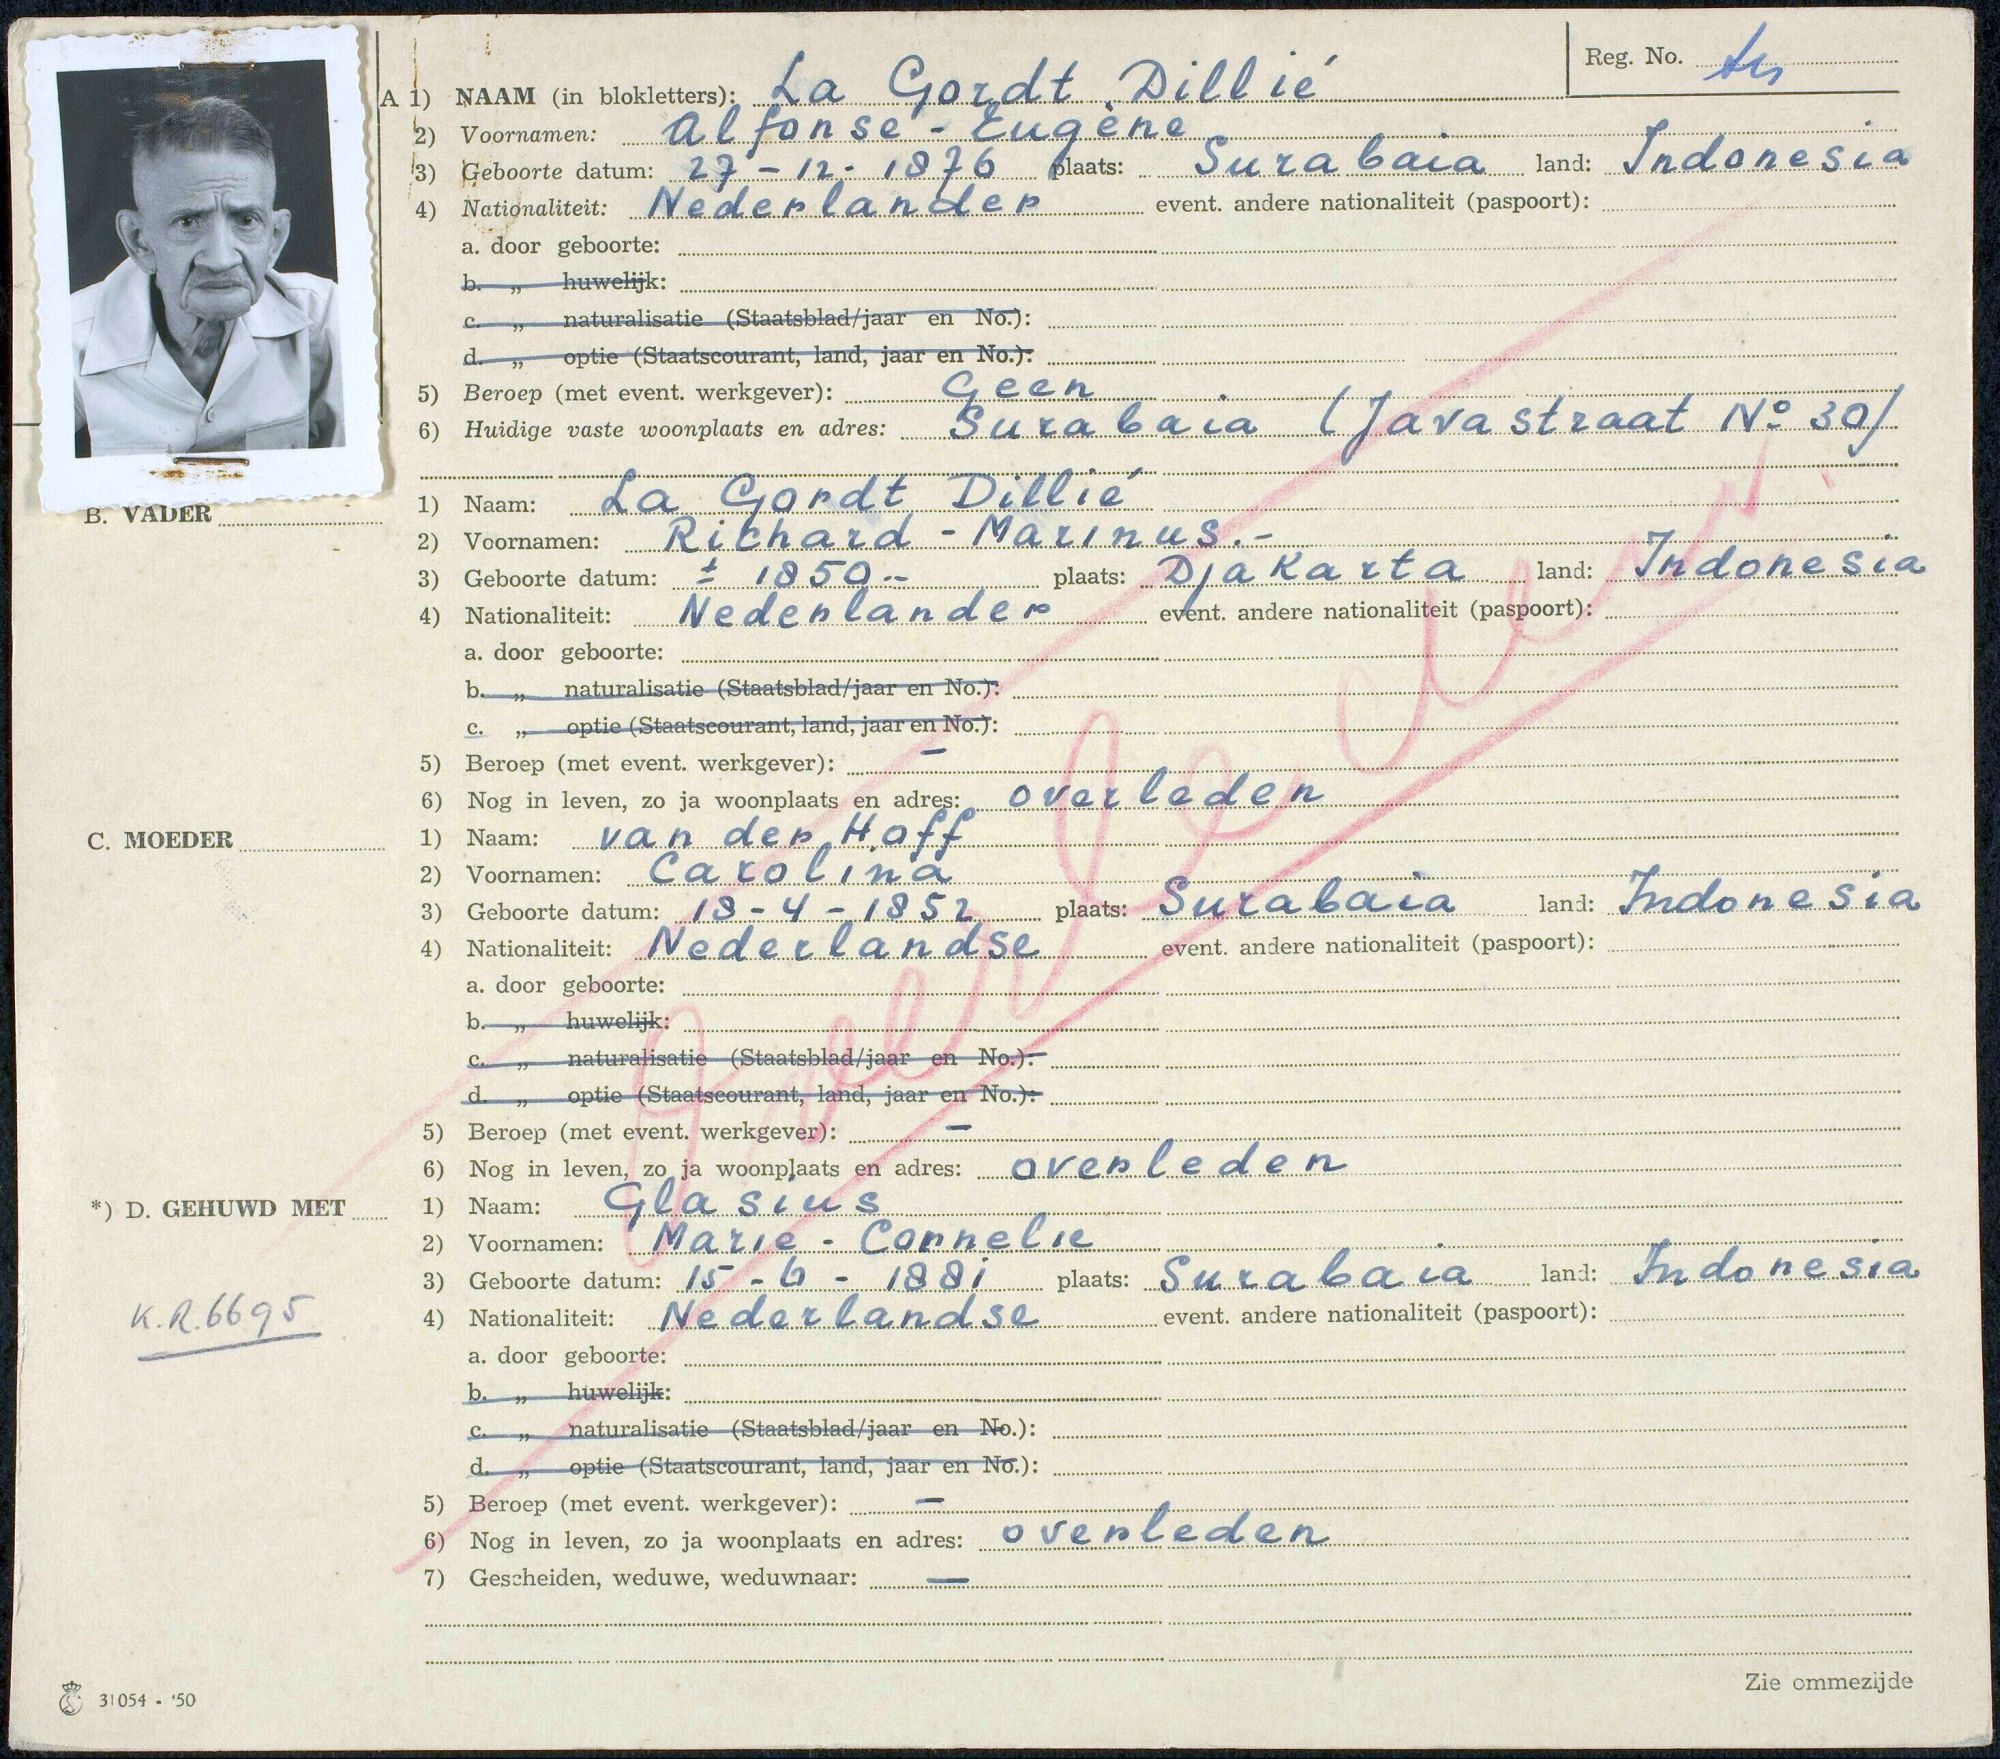 Reg. No.
A 1) NAAM (in blokletters): La Gordt Dillié
2) Voornamen: Alfonse - Eugène
3) Geboorte datum: 27 - 12 - 1876 plaats: Surabaia land: Indonesia
4) Nationaliteit: Nederlander event. andere nationaliteit (paspoort):
a. door geboorte:
b. „ huwelijk:
c. „ naturalisatie (Staatsblad/jaar en No.):
d. „ optie (Staatscourant, land, jaar en No.):
5) Beroep (met event. werkgever): Geen
6) Huidige vaste woonplaats en adres: Surabaia (Javastraat No 30)
B. VADER
1) Naam: La Gordt Dillié
2) Voornamen: Richard - Marinus.-
3) Geboorte datum: ± 1850.- plaats: Djakarta land: Indonesia
4) Nationaliteit: Nederlander event. andere nationaliteit (paspoort):
a. door geboorte:
b. „ naturalisatie (Staatsblad/jaar en No.):
c. „ optie (Staatscourant, land, jaar en No.):
5) Beroep (met event. werkgever): —
6) Nog in leven, zo ja woonplaats en adres: overleden
C. MOEDER
1) Naam: van der Hoff
2) Voornamen: Carolina
3) Geboorte datum: 18 - 4 - 1852 plaats: Surabaia land: Indonesia
4) Nationaliteit: Nederlandse event. andere nationaliteit (paspoort):
a. door geboorte:
b. „ huwelijk:
c. „ naturalisatie (Staatsblad/jaar en No.):
d. „ optie (Staatscourant, land, jaar en No.):
5) Beroep (met event. werkgever): —
6) Nog in leven, zo ja woonplaats en adres: overleden
*) D. GEHUWD MET
1) Naam: Glasius
2) Voornamen: Marie - Cornelie
3) Geboorte datum: 15 - 6 - 1881 plaats: Surabaia land: Indonesia
K.R. 6695
4) Nationaliteit: Nederlandse event. andere nationaliteit (paspoort):
a. door geboorte:
b. „ huwelijk:
c. „ naturalisatie (Staatsblad/jaar en No.):
d. „ optie (Staatscourant, land, jaar en No.):
5) Beroep (met event. werkgever): —
6) Nog in leven, zo ja woonplaats en adres: overleden
7) Gescheiden, weduwe, weduwnaar: —
31054 - '50
Zie ommezijde